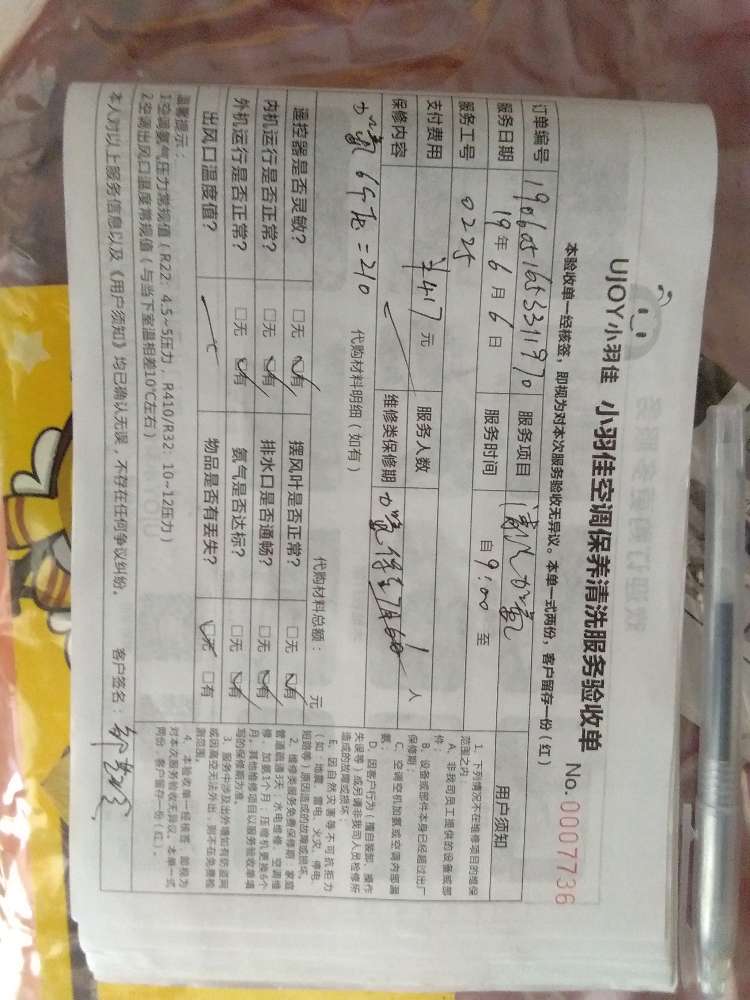 UJOY小羽佳 小羽佳空调保养清洗服务验收单
No.0007736
本验收单一经核签，即视为对本次服务验收无异议。本单一式两份，客户留存一份（红）
订单编号 服务项目 清洗加氨
服务日期 19年6月6日 服务时间 自9:00 至
服务工号 0225
支付费用 ¥417 元 服务人数 1 人
保修内容 维修类保修期
代购材料明细（如有）
=210
代购材料总额： 元
遥控器是否灵敏？ □无 □有 摆风叶是否正常？ □无 □有
内机运行是否正常？ □无 □有 排水口是否通畅？ □无 □有
外机运行是否正常？ □无 □有 氨气是否达标？ □无 □有
出风口温度值？ ℃ 物品是否有丢失？ □无 □有
温馨提示：
1空调氨气压力常规值（R22：4.5~5压力，R410/R32：10~12压力）
2空调出风口温度常规值（与当下室温相差10℃左右）
本人对以上服务信息以及《用户须知》均已确认无误，不存在任何争议纠纷。 客户签名：
用户须知
1、下列情况不在维修项目的维保
范围之内：
A、非我司员工提供的设备或部
件；
B、设备或部件本身已经超过出厂
保修期；
C、空调空机加氨或空调内部漏
氨；
D、因客户行为（擅自装卸、操作
失误等）或另请非我司人员检修所
造成的故障或损坏；
E、因自然灾害等不可抗拒力
（如：地震、雷电、火灾、停电、
短路等）原因造成的故障或损坏。
2、维修类服务免费保修期：家庭
管道疏通3天，水电维修、空调维
修、加氨1个月，压缩机更换6个
月，其他维修项目以服务验收单填
写的保修期为准。
3、服务中涉及出外墙如有防盗网
或因高空无法外出，则不在免费检
测范围。
4、本验收单一经核签，即视为
对本次服务验收无异议。本单一式
两份，客户留存一份（红）。